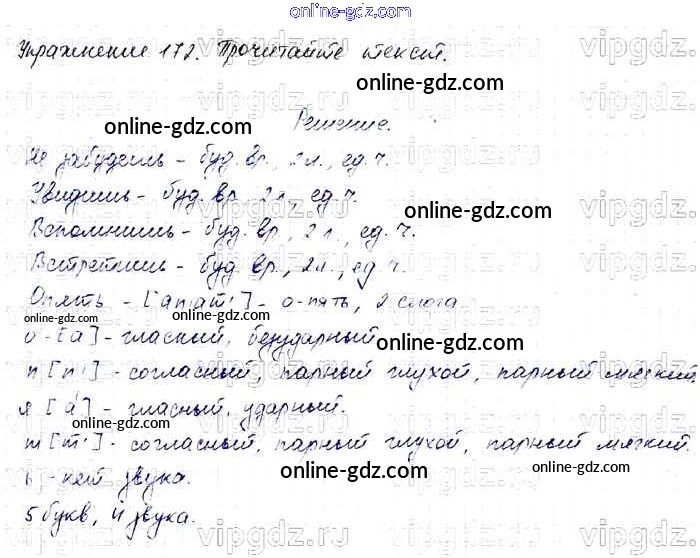 online-gdz.com
Упражнение 172. Прочитайте текст.
online-gdz.com
online-gdz.com
Решение.
Не забудешь - буд. вр., 2 л., ед. ч.
online-gdz.com
Увидишь - буд. вр. 2 л., ед. ч.
online-gdz.com
Вспомнишь - буд. вр., 2 л., ед. ч.
Встретишь - буд. вр., 2 л., ед ч.
online-gdz.com
Опять - [ап'ат'] - о-пять, 2 слога
о - [а] - гласный, безударный
online-gdz.com
п [п'] - согласный, парный глухой, парный мягкий
я [а́] - гласный, ударный.
online-gdz.com
т [т'] - согласный, парный глухой, парный мягкий.
online-gdz.com
online-gdz.com
ь - нет звука.
5 букв, 4 звука.
online-gdz.com
vipgdz.com
vipgdz.com
vipgdz.com
vipgdz.com
vipgdz.com
vipgdz.com